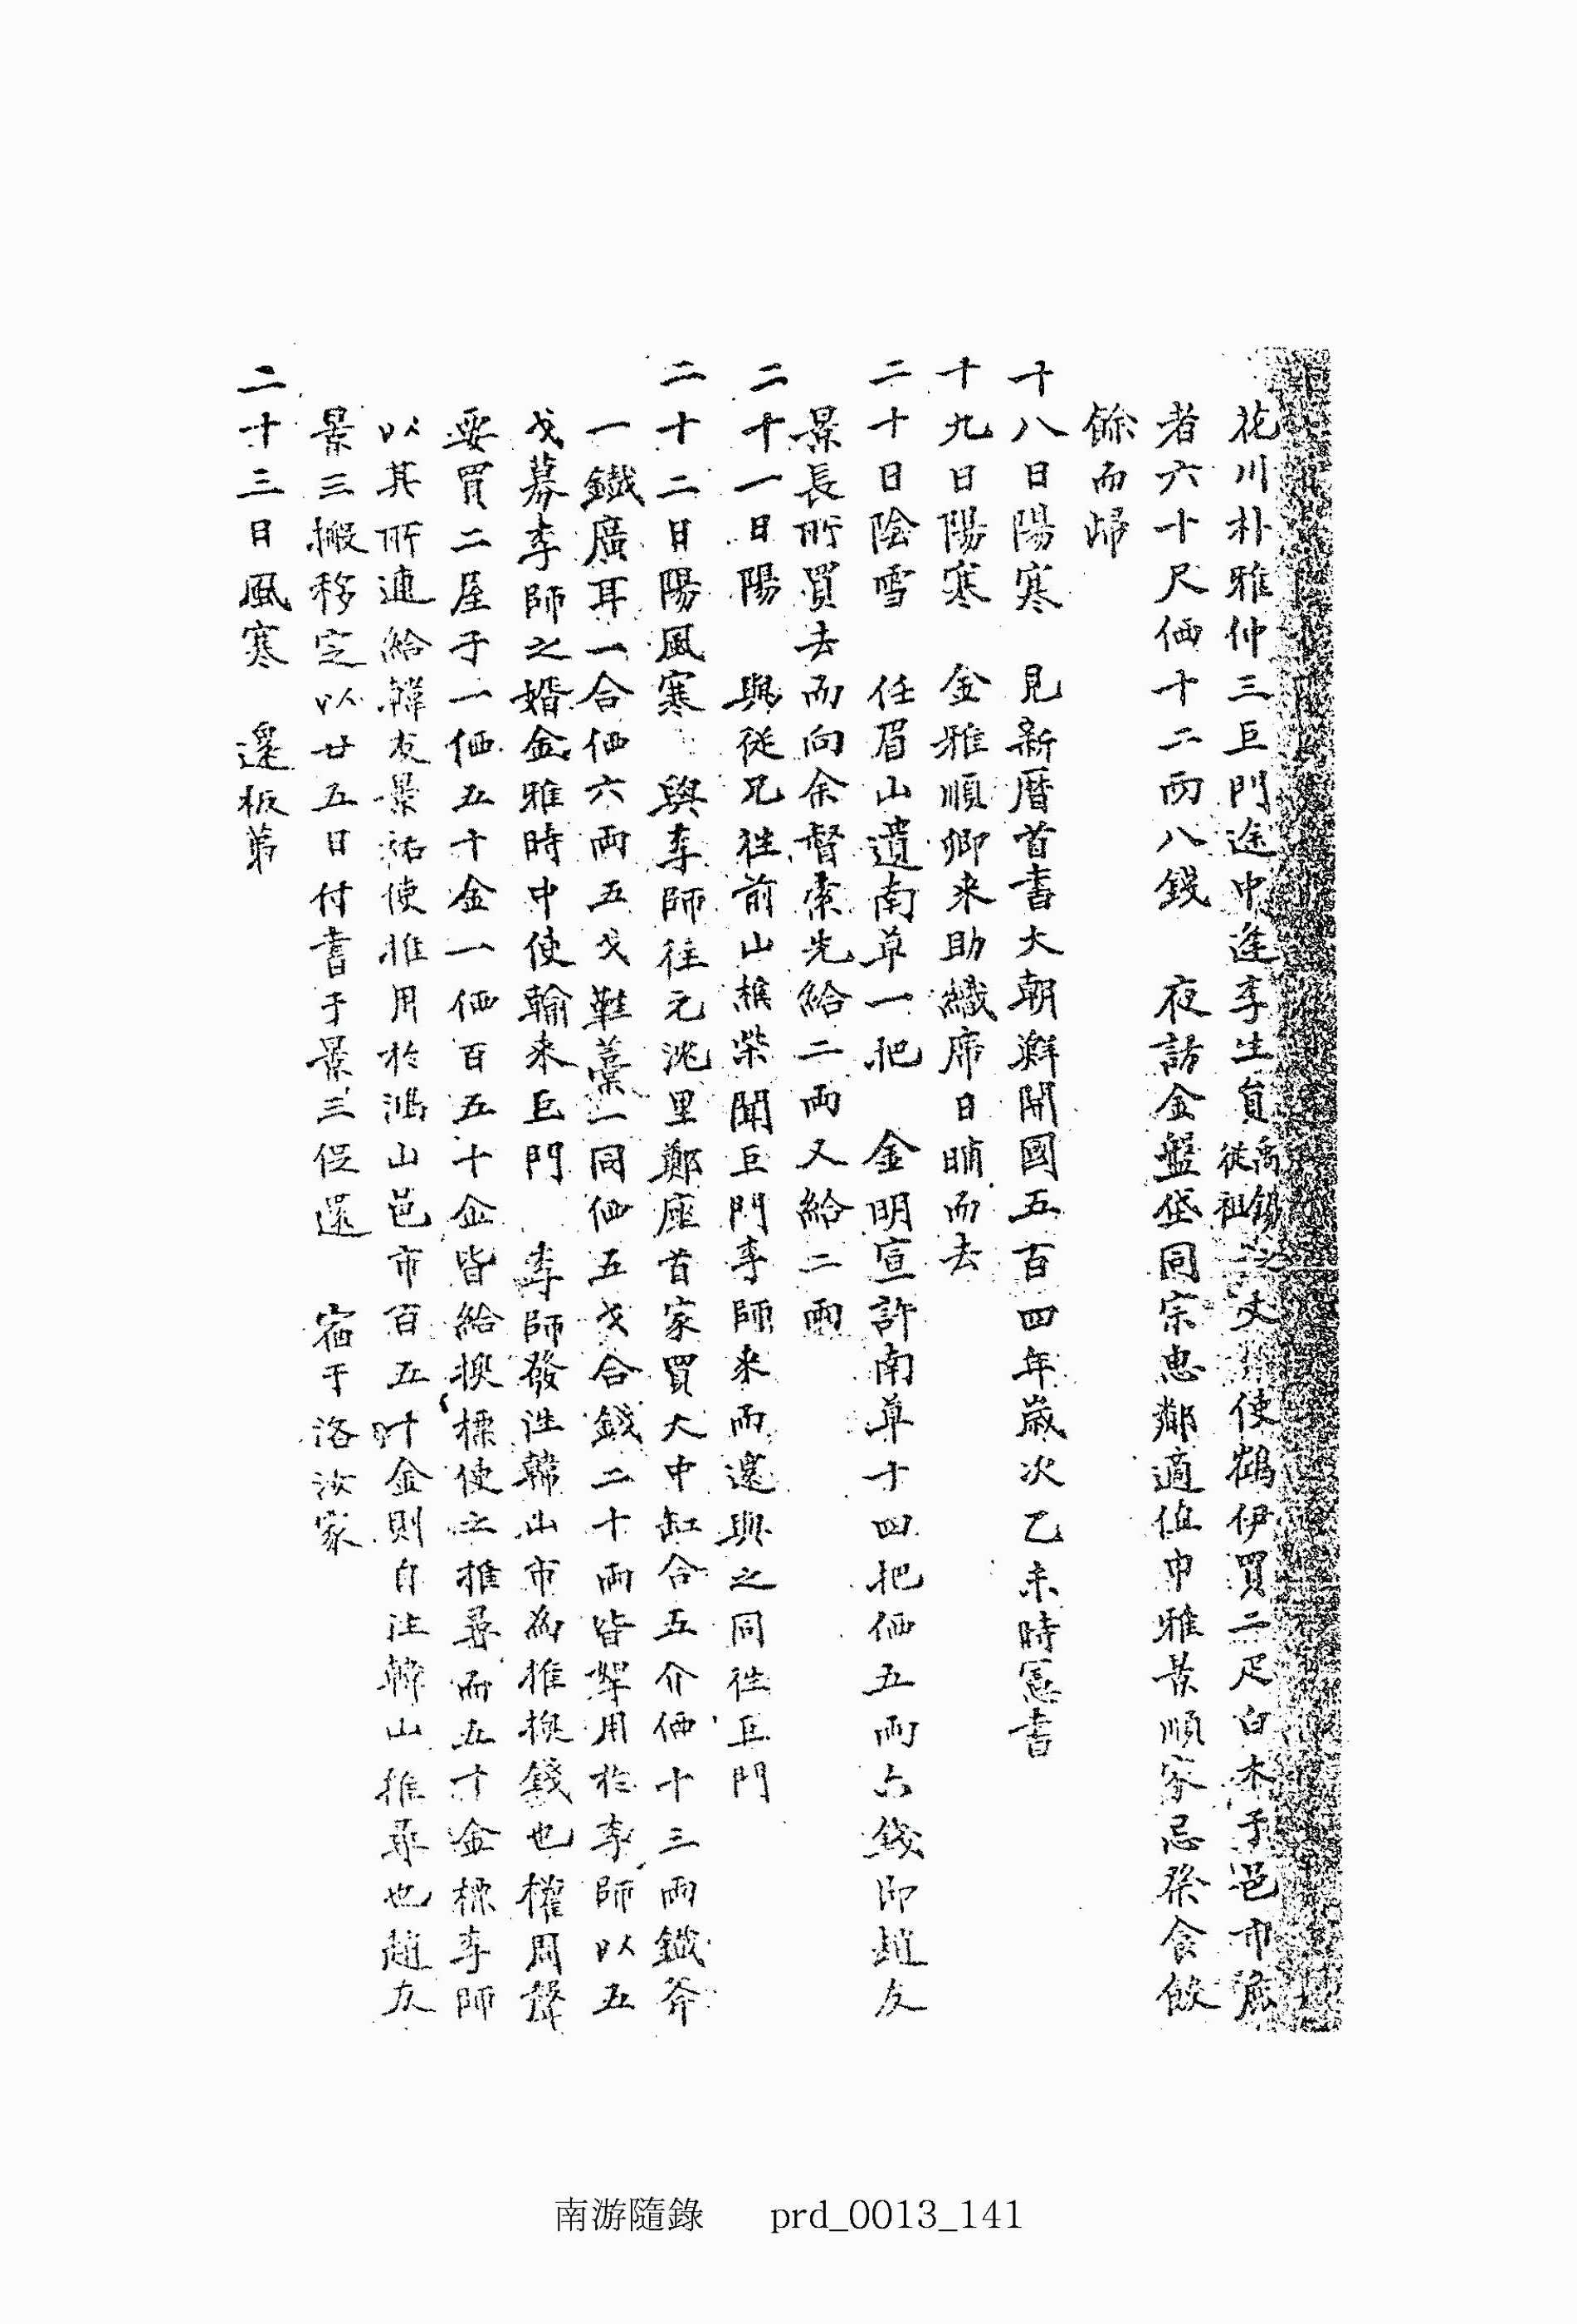 花川朴雅仲三巨門途中逢李生員禹錫之從祖丈 使鶴伊買二疋白木于邑市麁
者六十尺価十二両八錢 夜訪金盤垈同宗忠鄰適值申雅景順家忌祭食餕
餘而歸
十八日陽寒 見新曆首書大朝鮮開國五百四年歲次乙未時憲書
十九日陽寒 金雅順卿来助織席日晡而去
二十日陰雪 任眉山遺南草一把 金明宣許南草十四把価五両六錢卽趙友
景長所買去而向余督索先給二両又給二両
二十一日陽 與從兄往前山樵柴聞巨門李師来而還與之同往巨門
二十二日陽風寒 與李師往元洮里鄭座首家買大中缸合五介価十三両鐵斧
一鐵廣耳一合価六両五戈鞋藁一同価五戈合錢二十両皆犁用於李師以五
戈募李師之婿金雅時中使輸来巨門 李師發往韓山市為推換錢也權周聲
要買二屋于一価五十金一価百五十金皆給換標使之推尋而五十金標李師
以其所連給韓友景祐使推用於鴻山邑市百五十金則自往韓山推尋也趙友
景三搬移定以廿五日付書于景三促還 宿于洛汝家
二十三日風寒 還板第